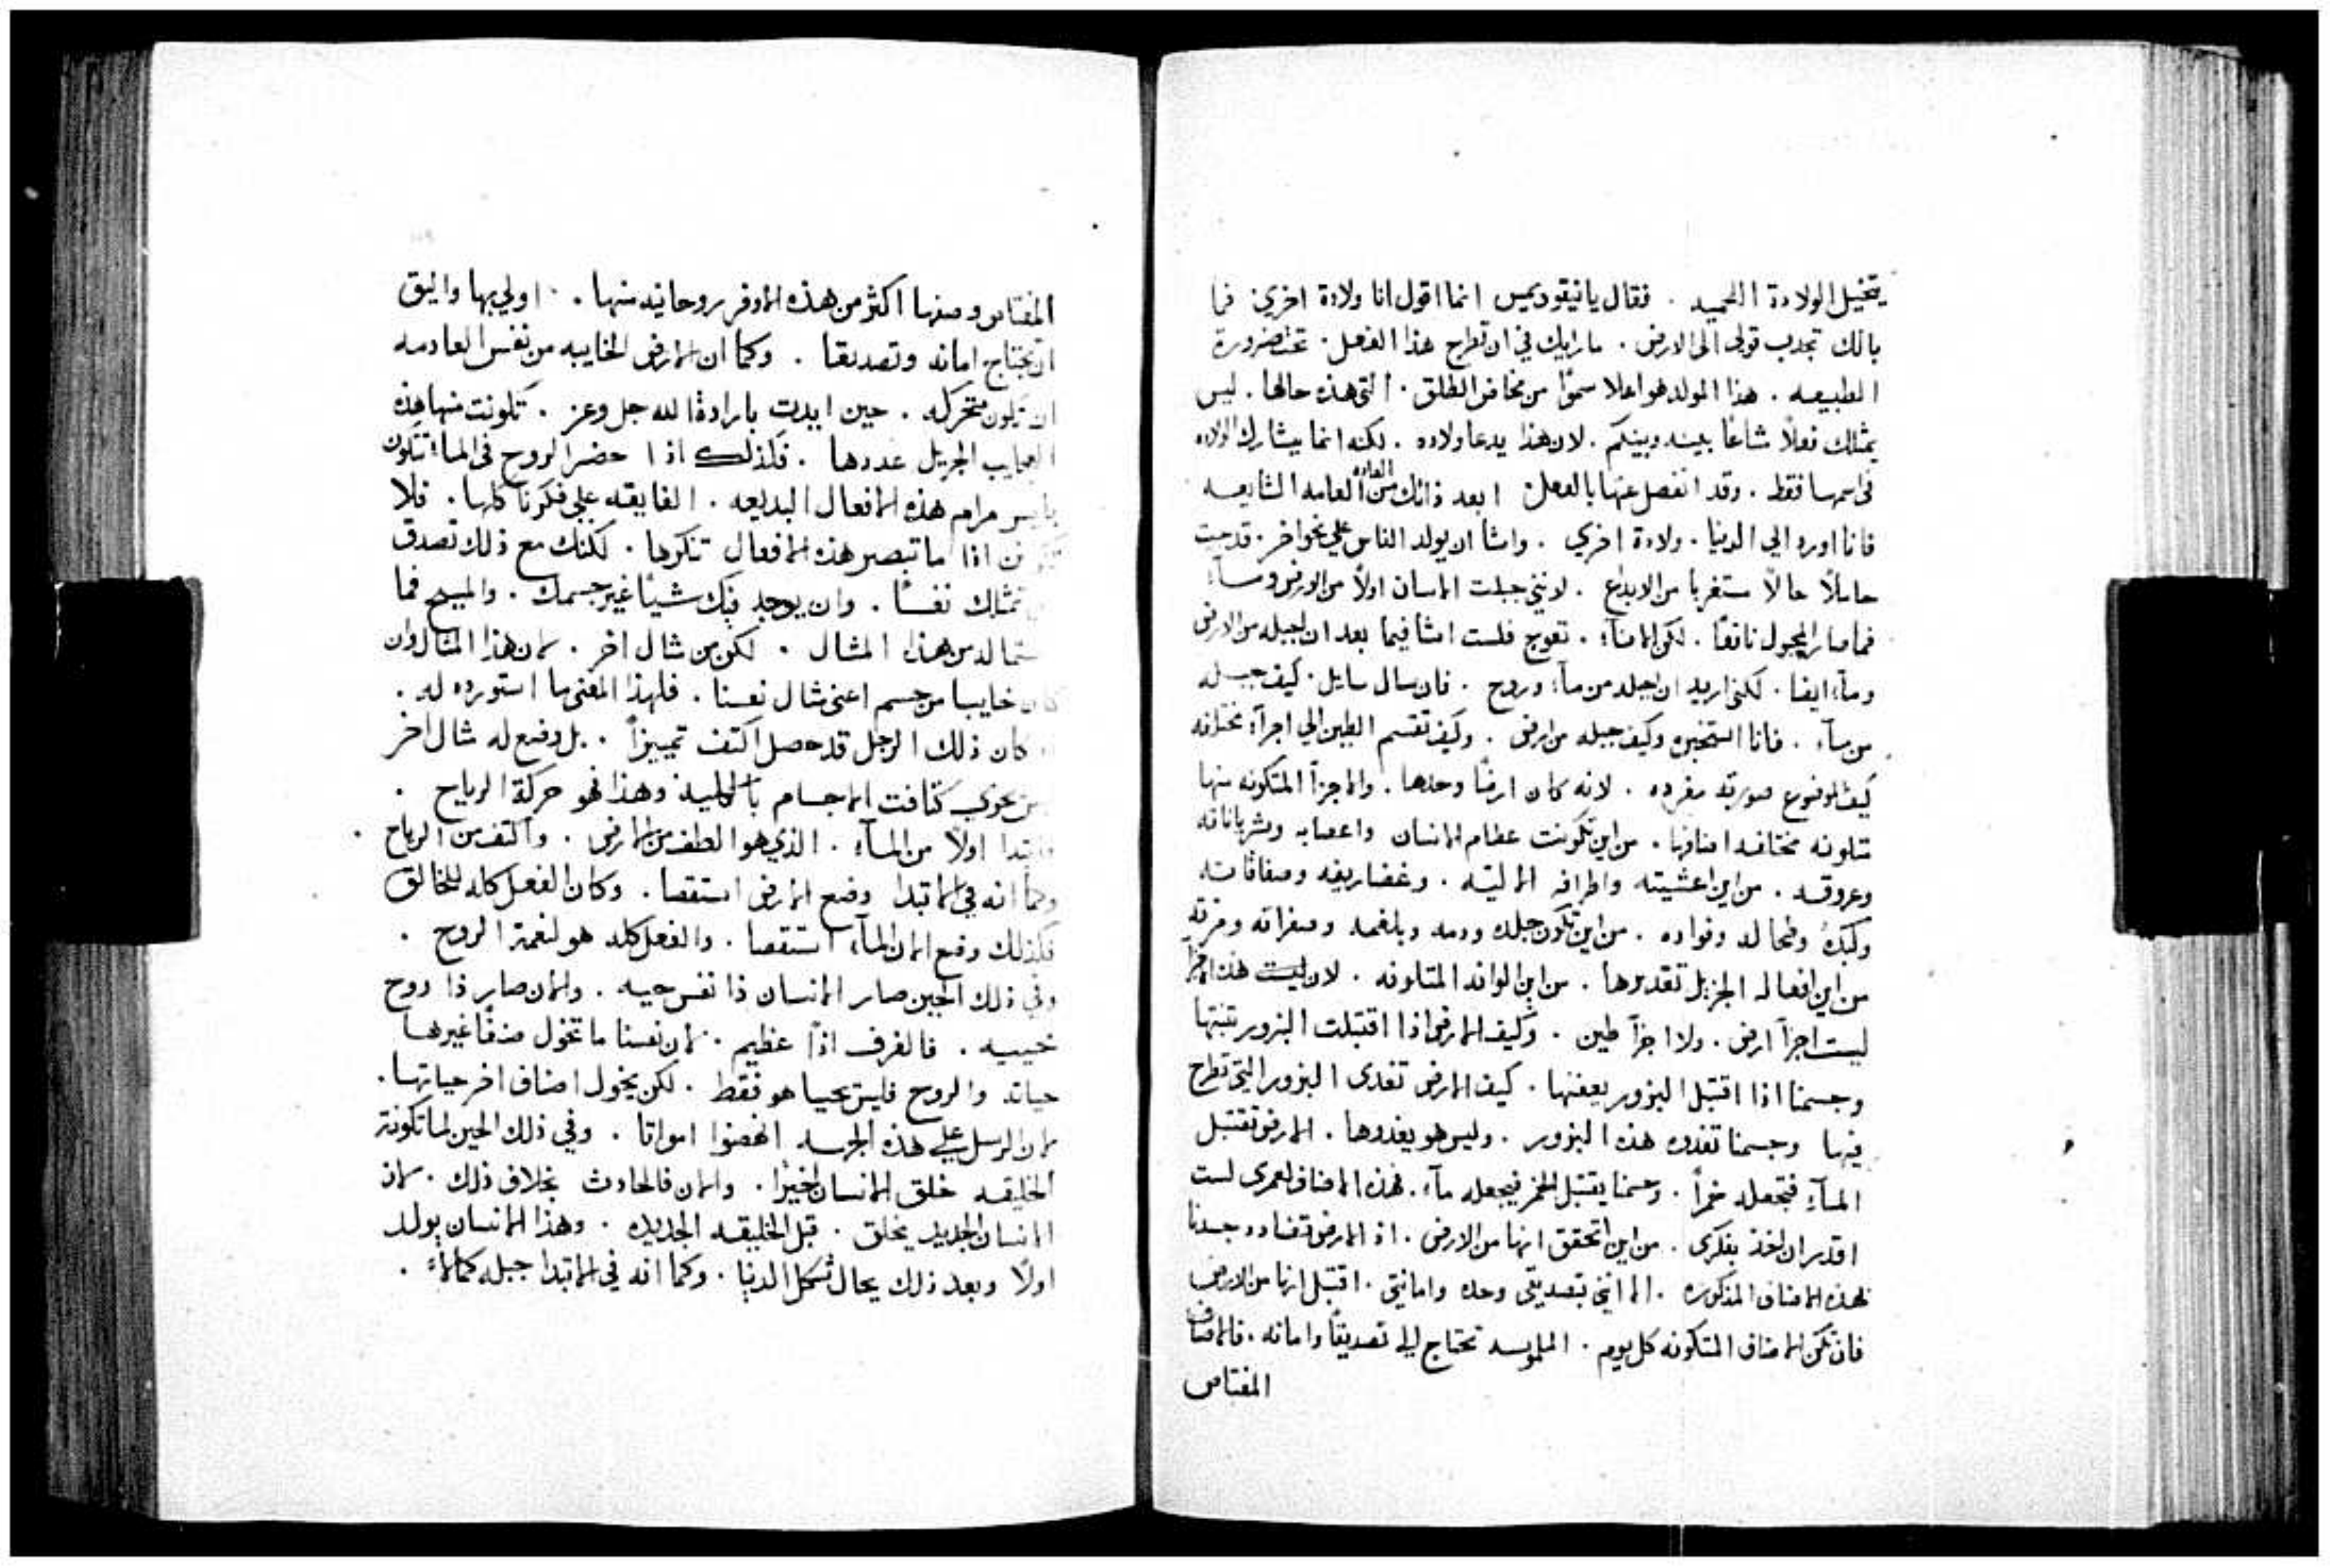 يتخيل الولادة اللحميه . فقال يا نيقوديمس انما اقول انا ولادة اخري . فما
بالك تجدب قولي الى الارض . ما رايك في ان تطرح هذا الفعل . تحت ضرورة
الطبيعه . هذا المولد هو اعلا سموًا من مخاض الطلق . التي هذه حالها . ليس
يمثلك فعلاً شاعًا بينه وبينكم . لان هذا يدعا ولاده . لكنه انما يشارك الولاده
في اسمها فقط . وقد انفصل عنها بالفعل ابعد ذاتك من العاده العاميه الشايعه
فانا اورد الي الدنيا . ولادة اخري . واشا ان يولد الناس علي نحو اخر . قد جيت
حاملاً حالاً مستغربا من الابداع . لانني جبلت الانسان اولاً من الارض وماء
فما صار المجبول نافعًا . لكن الاناء تعوج فلست اشا فيما بعد ان اجبله من الارض
وماء ايضا . لكني اريد ان اجبله من ماء وروح . فان سال سايل . كيف جبله
من ماء . فانا استخبره وكيف جبله من ارض . وكيف تقسم الطين الي اجزآء مختلفه
كيف الموضوع صورته مفرده . لانه كان ارضًا وحدها . والاجزآ المتكونه منها
متلونه مختلفه اصنافها . من اين تكونت عظام الانسان واعصابه وشرياناته
وعروقه . من اين اغشيته واطرافه الاليته . وغضاريفه وصفاقاته
وكبده وطحاله وفواده . من اين تكون جلده ودمه وبلغمه وصفراته ومرته
من اين افعاله الجزيل تقديرها . من اين الوانه المتلونه . لان ليست هذه الاجزا
ليست اجزآ ارض . ولا اجزآ طين . وكيف الارض اذا اقتبلت البزور تنبتها
وجسمنا اذا اقتبل البزور يعفنها . كيف الارض تغدى البزور التي تطرح
فيها وجسمنا تغدوه هذه البزور . وليس هو يغدوها . الارض تقتبل
المآء فتجعله خمرًا . وجسمنا يقتبل الخمر فيجعله مآء . فهذه الاصناف لعمري لست
اقدر ان اخذ بفكري . من اين اتحقق انها من الارض . اذ الارض تضادد جسدنا
لهذه الاصناف المذكوره . الا انني بتصديقي وحده وامانتي . اقتبل انها من الارض
فان تكن الاصناف المتكونه كل يوم . الملموسه تحتاج الي تصديقًا وامانه . فالاصناف
المقتاص
المقتاص وصفها اكثر من هذه الاوفر روحانيه منها . اولي بها واليق
ان تحتاج امانه وتصديقا . وكما ان الارض الخايبه من نفس العادمه
ان تكون متحركه . حين ايدت بارادة الله جل وعز . تكونت منها هذه
العجايب الجزيل عددها . فكذلك اذا حضر الروح في الماء تتكون
مرام هذه الافعال البديعه . الفايقه علي فكرنا كلها . فلا
اذا ما تبصر هذه الافعال تنكرها . لكنك مع ذلك تصدق
تمثلك نفسًا . وان يوجد فيك شيئًا غير جسمك . والمسيح فما
من هذا المثال . لكن من مثال اخر . لان هذا المثال وان
كان خايبا من جسم اعني مثال نفسنا . فلهذا المعني ما استورده له .
كان ذلك الرجل قد حصل اكثف تمييزاً . بل وضع له مثال اخر
يحوي كثافت الاجسام بالكليه وهذا فهو حركة الرياح .
فابتدا اولاً من المآء . الذي هو الطف من الارض . واكثف من الرياح .
وكما انه في الابتدا وضع الارض استقصا . وكان الفعل كله للخالق
فكذلك وضع الان المآء استقصا . والفعل كله هو لنعمة الروح .
وفي ذلك الحين صار الانسان ذا نفس حييه . والان صار ذا روح
محييه . فالفرق اذًا عظيم . لان نفسنا ما تخول صنفًا غيرها
حياته والروح فليس يحيا هو فقط . لكن يخول اصناف اخر حياتها .
لان الرسل علي هذه الجهه انهضوا امواتا . وفي ذلك الحين لما تكونت
الخليقه خلق الانسان اخيرًا . والان فالحادث بخلاف ذلك . لان
الانسان الجديد يخلق . قبل الخليقه الجديده . وهذا الانسان يولد
اولًا وبعد ذلك يحال شكل الدنيا . وكما انه في الابتدا جبله كاملاً .